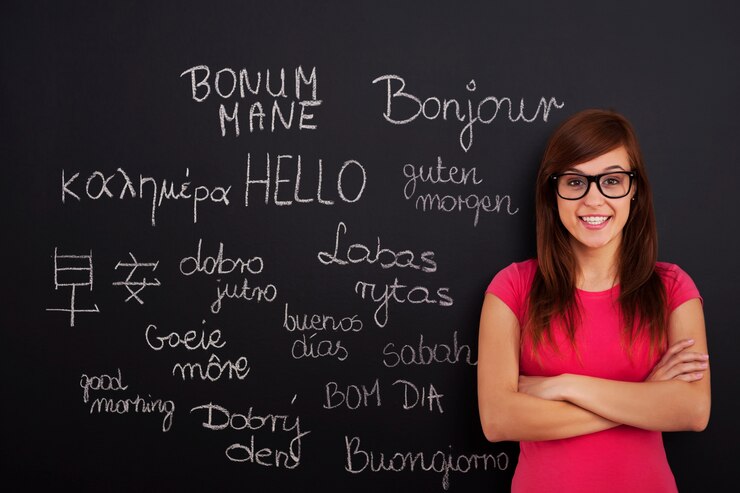 BONUM
MANE
Bonjour
καλημέρα
HELLO
guten
morgen
早安
dobro
jutro
Labas
rytas
Goeie
môre
buenos
días
sabah
good
morning
Dobrý
den
BOM DIA
Buongiorno